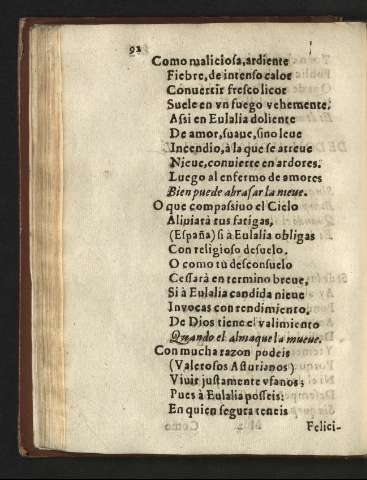 92
Como maliciosa, ardiente
Fiebre, de intenso calor
Convertir fresco licor
Suele en vn fuego vehemente.
Assi en Eulalia doliente
De amor, suaue, sino leue
Incendio, à la que se atreue
Nieue, conuierte en ardores.
Luego al enfermo de amores
Bien puede abrasar la nieue.
O que compassiuo el Cielo
Aliuiarà tus fatigas,
(España) si à Eulalia obligas
Con religioso desuelo.
O como tu desconsuelo
Cessarà en termino breue,
Si à Eulalia candida nieue
Inuocas con rendimiento.
De Dios tiene el valimiento
Quando el alma que la mueue.
Con mucha razon podeis
(Valerosos Asturianos)
Viuir justamente vfanos;
Pues à Eulalia posseis:
En quien segura teneis
Felici-